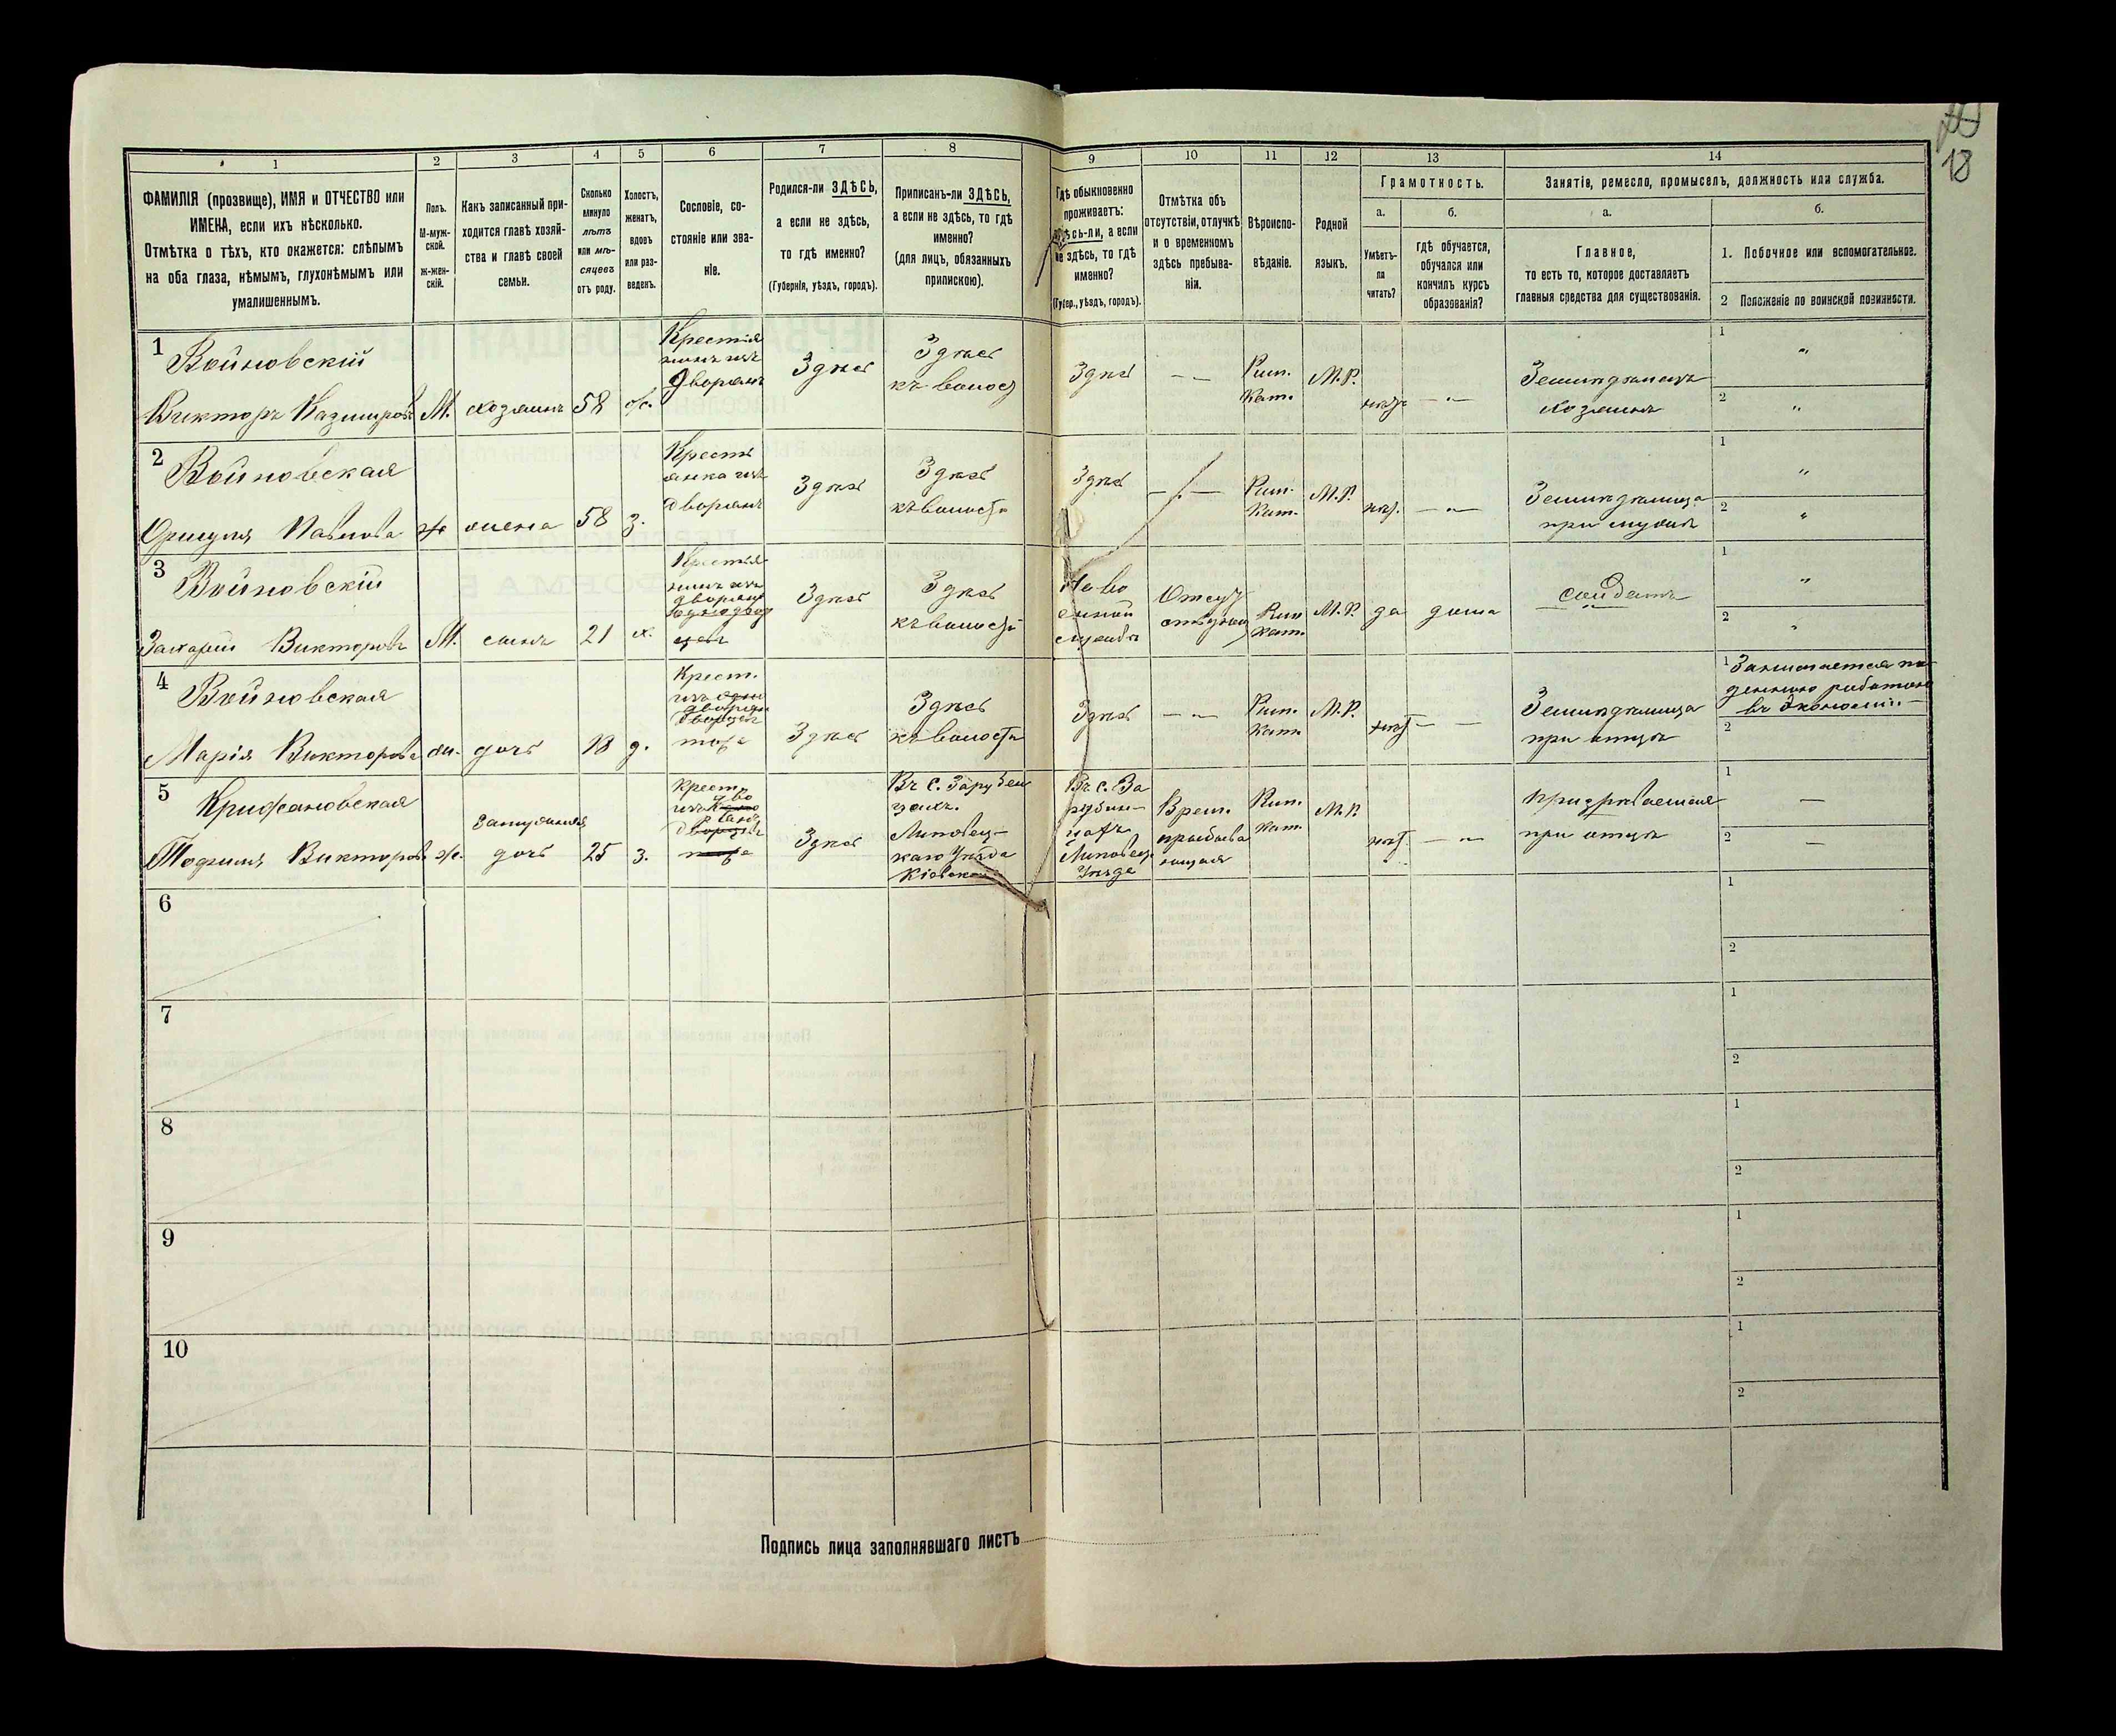 18
1 2 3 4 5 6 7 8 9 10 11 12 13 14
ФАМИЛІЯ (прозвище), ИМЯ и ОТЧЕСТВО или
ИМЕНА, если ихъ нѣсколько.
Отмѣтка о тѣхъ, кто окажется: слѣпымъ
на оба глаза, нѣмымъ, глухонѣмымъ или
умалишеннымъ.
Полъ.
М-муж-
ской.
ж-жен-
скій.
Какъ записанный при-
ходится главѣ хозяй-
ства и главѣ своей
семьи.
Сколько
минуло
лѣтъ
или мѣ-
сяцевъ
отъ роду.
Холостъ,
женатъ,
вдовъ
или раз-
веденъ.
Сословіе, со-
стояніе или зва-
ніе.
Родился-ли ЗДѢСЬ,
а если не здѣсь,
то гдѣ именно?
(Губернія, уѣздъ, городъ).
Приписанъ-ли ЗДѢСЬ,
а если не здѣсь, то гдѣ
именно?
(для лицъ, обязанныхъ
припискою).
Гдѣ обыкновенно
проживаетъ:
здѣсь-ли, а если
не здѣсь, то гдѣ
именно?
(Губер., уѣздъ, городъ).
Отмѣтка объ
отсутствіи, отлучкѣ
и о временномъ
здѣсь пребыва-
ніи.
Вѣроиспо-
вѣданіе.
Родной
языкъ.
Грамотность.
а.
Умѣетъ-
ли
читать?
б.
гдѣ обучается,
обучался или
кончилъ курсъ
образованія?
Занятіе, ремесло, промыселъ, должность или служба.
а.
Главное,
то есть то, которое доставляетъ
главныя средства для существованія.
б.
1. Побочное или вспомогательное.
2 Положеніе по воинской повинности.
1
Войновскій
Викторъ Казимировъ
М.
хозяинъ
58
ж.
Крестья
нинъ изъ
Дворянъ
Здѣсь
Здѣсь
къ волост
Здѣсь
— „ —
Рим.
Кат.
М.Р.
нѣтъ
— „ —
Земледѣлецъ
хозяинъ
1 „
2 „
2
Войновская
Павлова
ж
жена
58
з.
Кресть
янка изъ
дворянъ
Здѣсь
Здѣсь
къ волости
Здѣсь
Рим.
Кат.
М.Р.
нѣт.
— „ —
Земледѣлица
при мужѣ
1 „
2 „
3
Войновскій
Захарій Викторовъ
М.
сынъ
21
х.
Крестья-
нинъ изъ
дворянъ
Здѣсь
Здѣсь
къ волости
На во
енной
службѣ
Рим
кат.
М.Р.
да
дома
солдатъ
1 „
2 „
4
Войновская
Марія Викторова
ж.
дочь
18
д.
Крест.
Здѣсь
Здѣсь
къ волости
Здѣсь
— „ —
Рим.
Кат.
М.Р.
нѣт
— —
Земледѣлица
при отцѣ
1 Занимается по-
денною работою
въ экономіи —
2
5
Крижановская
Теофиля Викторова
ж.
замужняя
дочь
25
з.
Крест.
Здѣсь
Въ с. Зарубин
цахъ.
Липовец-
каго Уѣзда
Кіевской
Въ с. За
рубин-
цахъ
Липовец.
Уѣзде
Врем.
пребыва
ющая
Рим.
кат.
М.Р.
нѣт.
— „ —
при отцѣ
1 —
2 —
6
1
2
7
1
2
8
1
2
9
1
2
10
1
2
Подпись лица заполнявшаго листъ